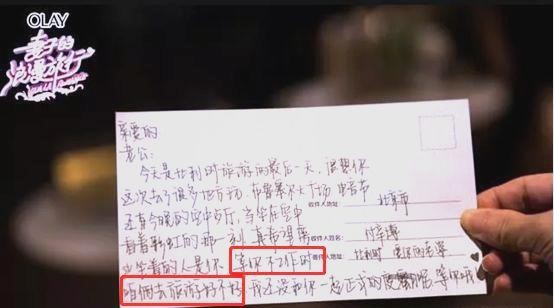 OLAY
妻子的
浪漫旅行
亲爱的
老公:
今天是比利时旅游的最后一天,很想你
这次去了很多地方玩,布鲁塞尔大广场
还有今晚的空中餐厅,当坐在空中
收件人地址: 北京市
看着彩虹的那一刻 真希望旁
收件人姓名: 付辛博
坐着的人是你 等你不工作时
寄件人地址: 比利时
咱俩去旅游好不好 我还没和你一起正式的度蜜月呢 等你哦